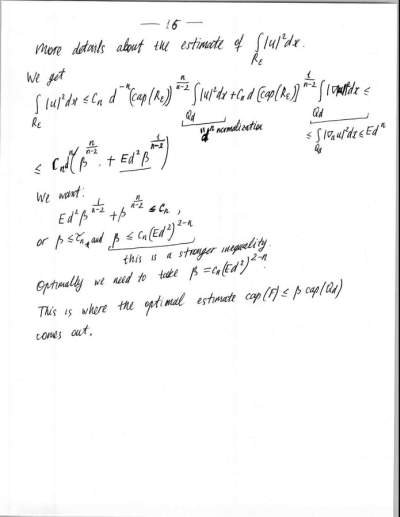 — 15 —
More details about the estimate of ∫_{R_E} |u|² dx.
We get
∫_{R_E} |u|² dx ≤ C_n d^{-n} (cap(R_E))^{n/(n-2)} ∫_{Q_d} |u|² dx + C_n d (cap(R_E))^{1/(n-2)} ∫_{Q_d} |∇u|² dx ≤
d^n normalization
≤ ∫_{Q_d} |∇_a u|² dx ≤ E d^n
≤ C_n d^n (β^{n/(n-2)} + E d² β^{1/(n-2)})
We want:
E d² β^{1/(n-2)} + β^{n/(n-2)} ≤ c_n ,
or β ≤ c_n and β ≤ c_n (E d²)^{2-n}
this is a stronger inequality.
Optimally we need to take β = c_n (E d²)^{2-n}.
This is where the optimal estimate cap(F) ≤ β cap(Q_d)
comes out.